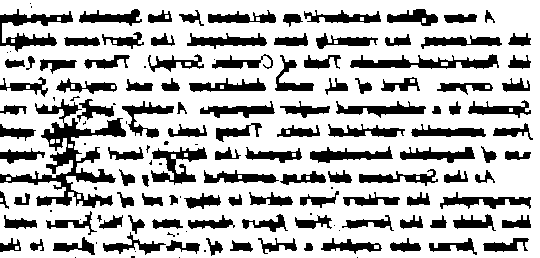 A new offline handwritten database for the Spanish language
ish sentences, has recently been developed: the Spartacus databa
ish Restricted-domain Task of Cursive Script). There were two
this corpus. First of all, most databases do not contain Spani
Spanish is a widespread major language. Another important rea
from semantic-restricted tasks. These tasks are
use of linguistic knowledge beyond the lexicon level in
As the Spartacus database consisted mainly of short sentence
paragraphs, the writers were asked to copy a set of sentences in f
line fields in the forms. Next figure shows one of the forms used
These forms also contain a brief set of instructions given to the